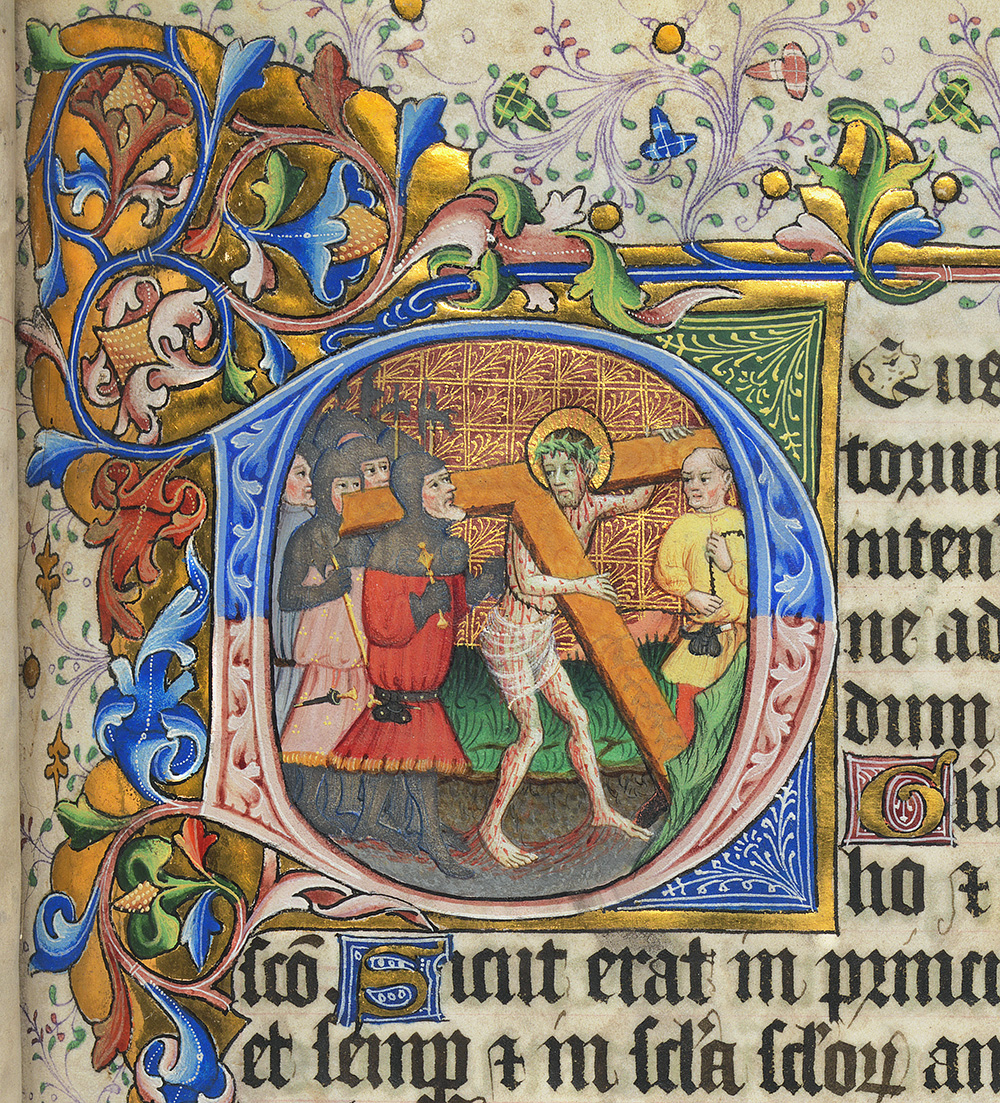 DEus
torium
inten
ne ad
dum
Gli
lio ⁊
scō. Sicut erat in princi
et semp ⁊ in scl'a scl'oꝝ am